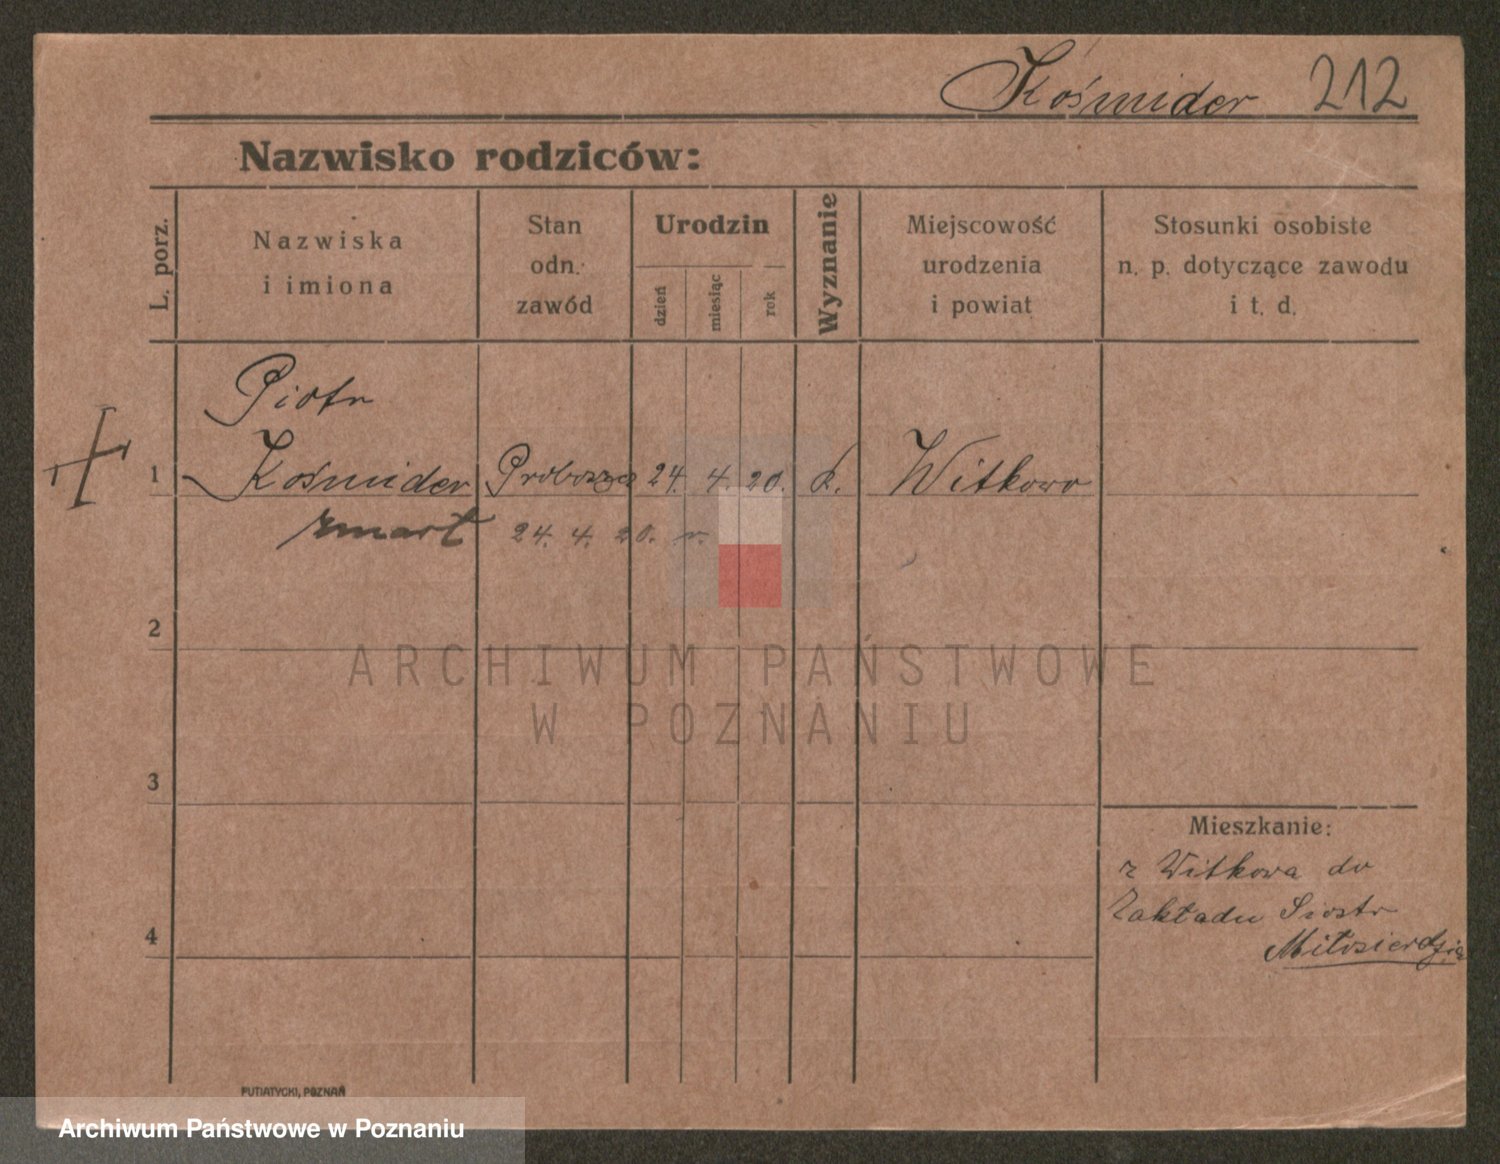 Kośmider 212
Nazwisko rodziców:
L. porz.
Nazwiska
i imiona
Stan
odn.
zawód
Urodzin
dzień
miesiąc
rok
Wyznanie
Miejscowość
urodzenia
i powiat
Stosunki osobiste
n. p. dotyczące zawodu
i t. d.
Piotr
1 Kośmider Proboszcz 24. 4. 20. k. Witkowo
zmarł 24. 4. 20. r.
2
ARCHIWUM PAŃSTWOWE
W POZNANIU
3
Mieszkanie:
z Witkowa do
Zakładu Siostr
Miłosierdzia
4
PUTIATYCKI, POZNAŃ
Archiwum Państwowe w Poznaniu